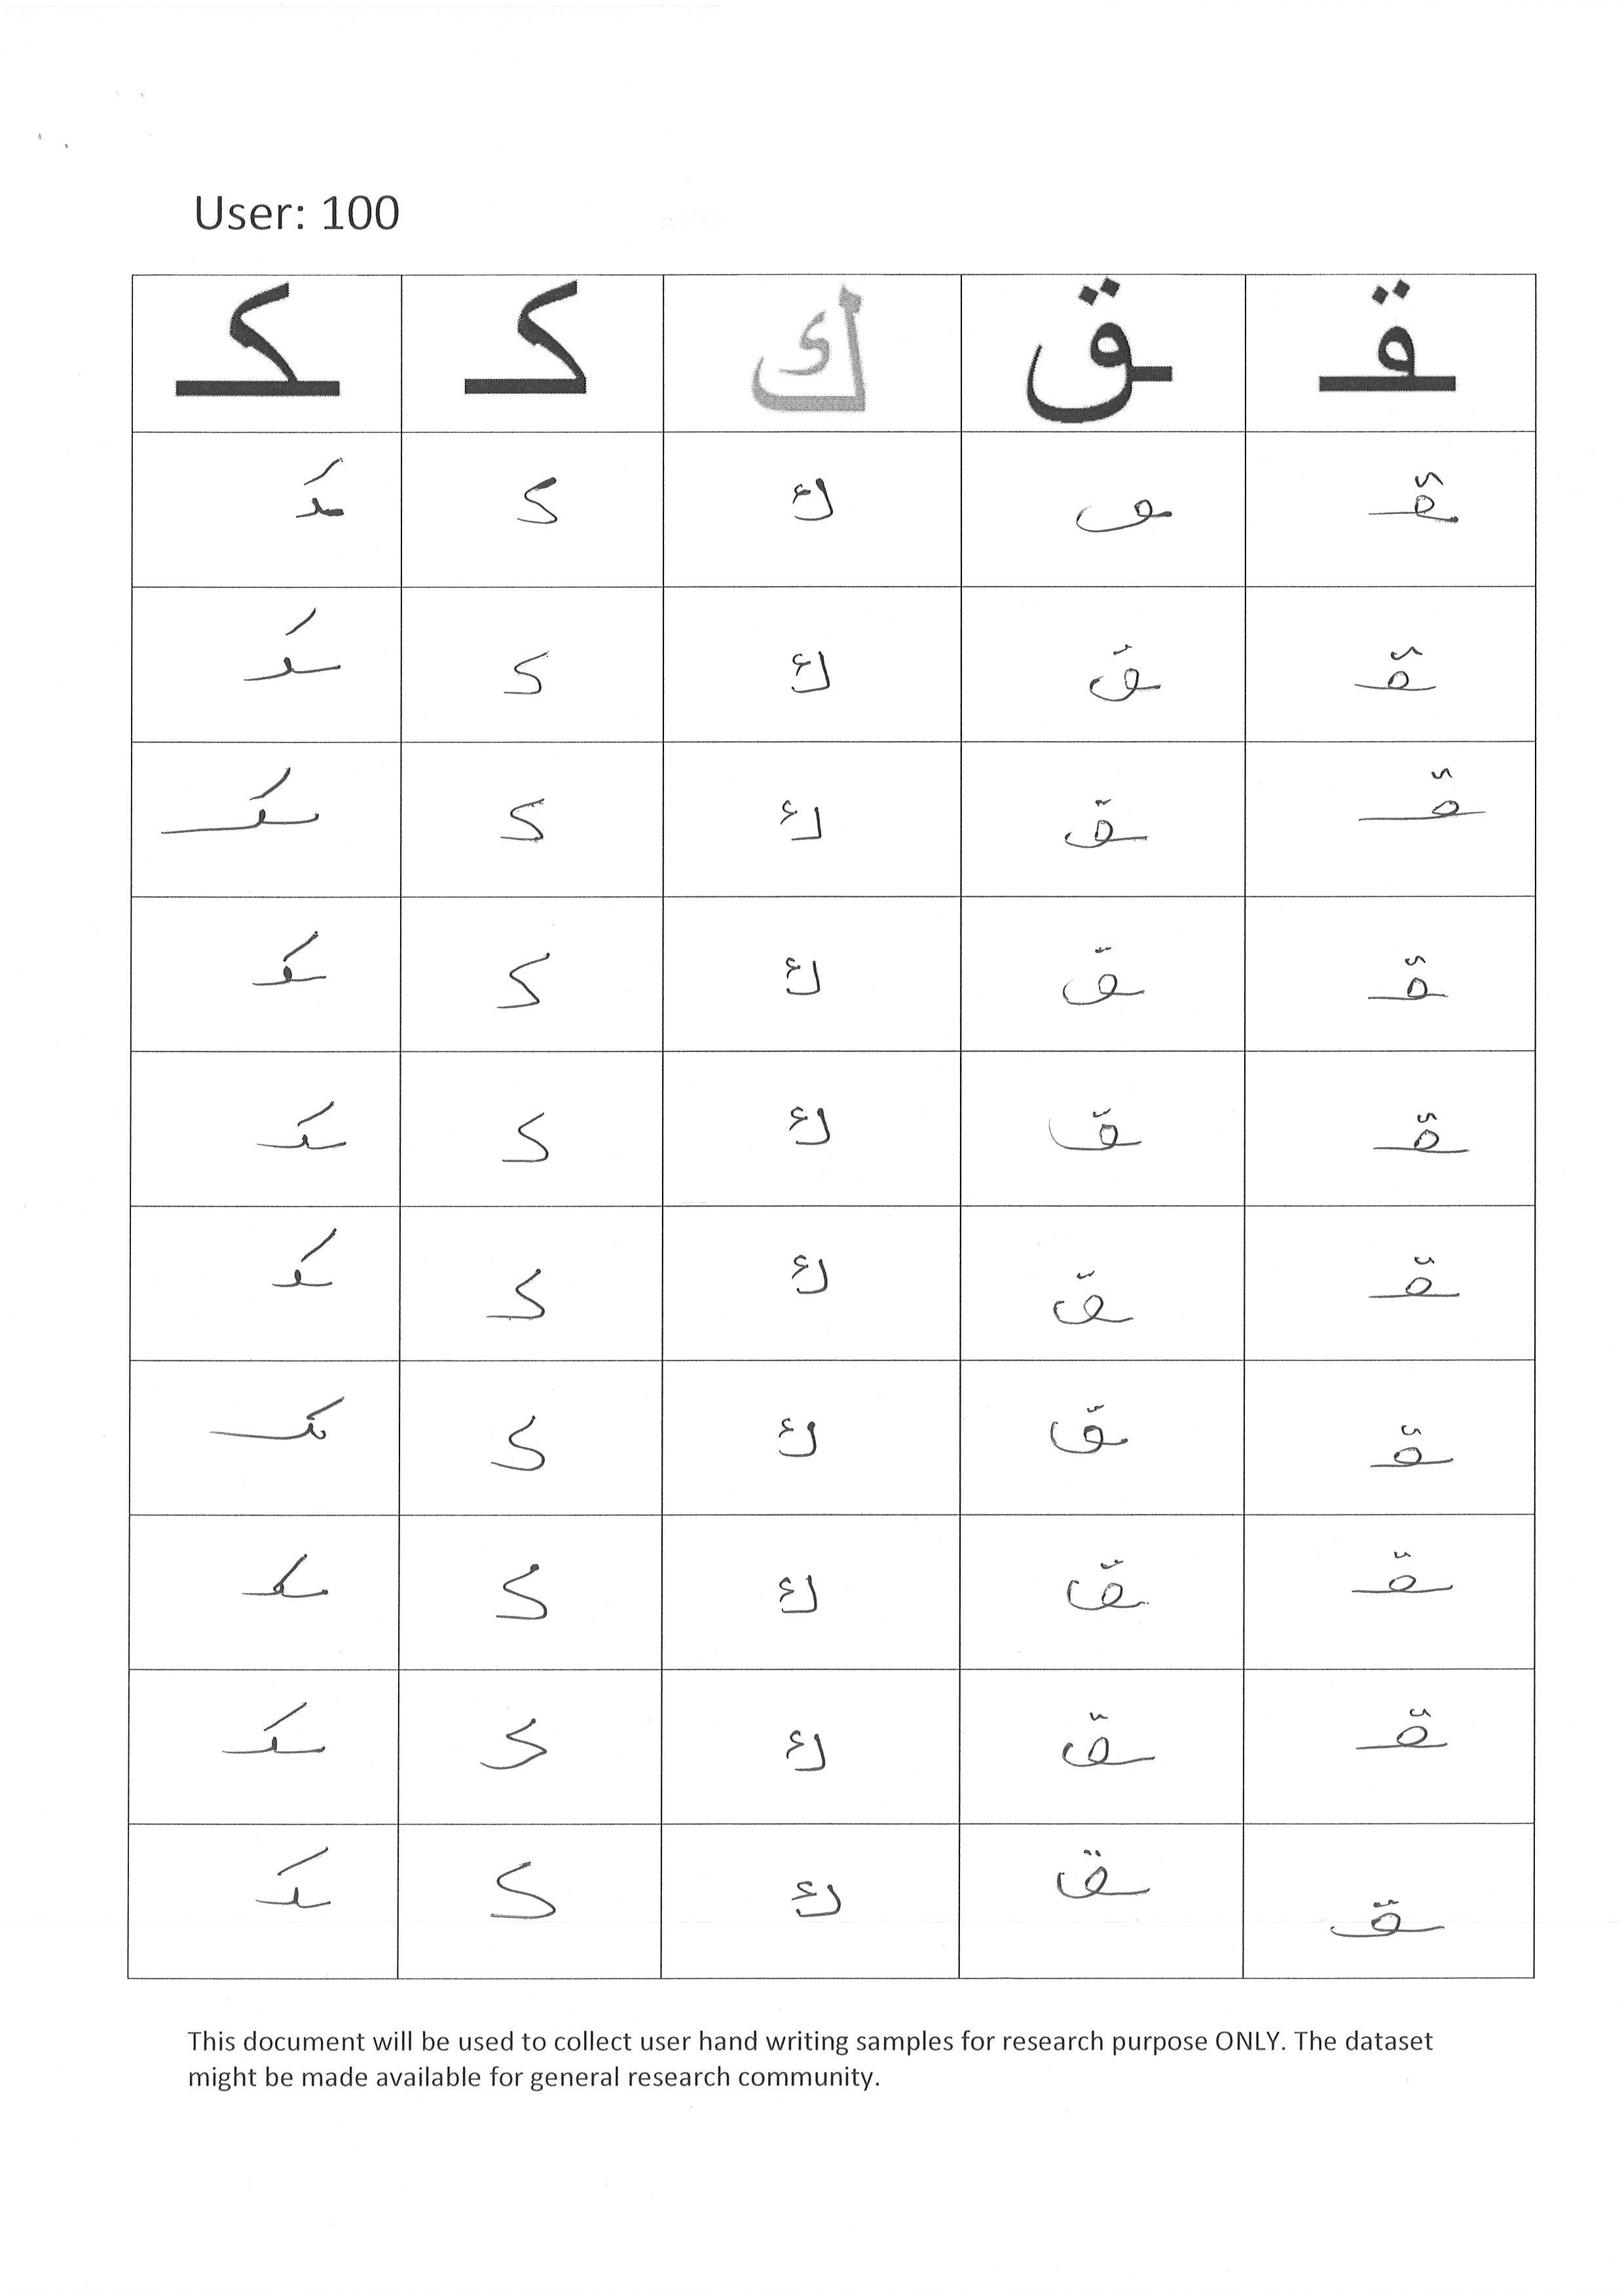 User: 100
ـقـ ـق ك كـ ـكـ
ـقـ ـٯ ك كـ ـكـ
ـقـ ـق ك كـ ـكـ
ـقـ ـق ك كـ ـكـ
ـقـ ـق ك كـ ـكـ
ـقـ ـق ك كـ ـكـ
ـقـ ـق ك كـ ـكـ
ـقـ ـق ك كـ ـكـ
ـقـ ـق ك كـ ـكـ
ـقـ ـق ك كـ ـكـ
ـقـ ـق ك كـ ـكـ
This document will be used to collect user hand writing samples for research purpose ONLY. The dataset
might be made available for general research community.